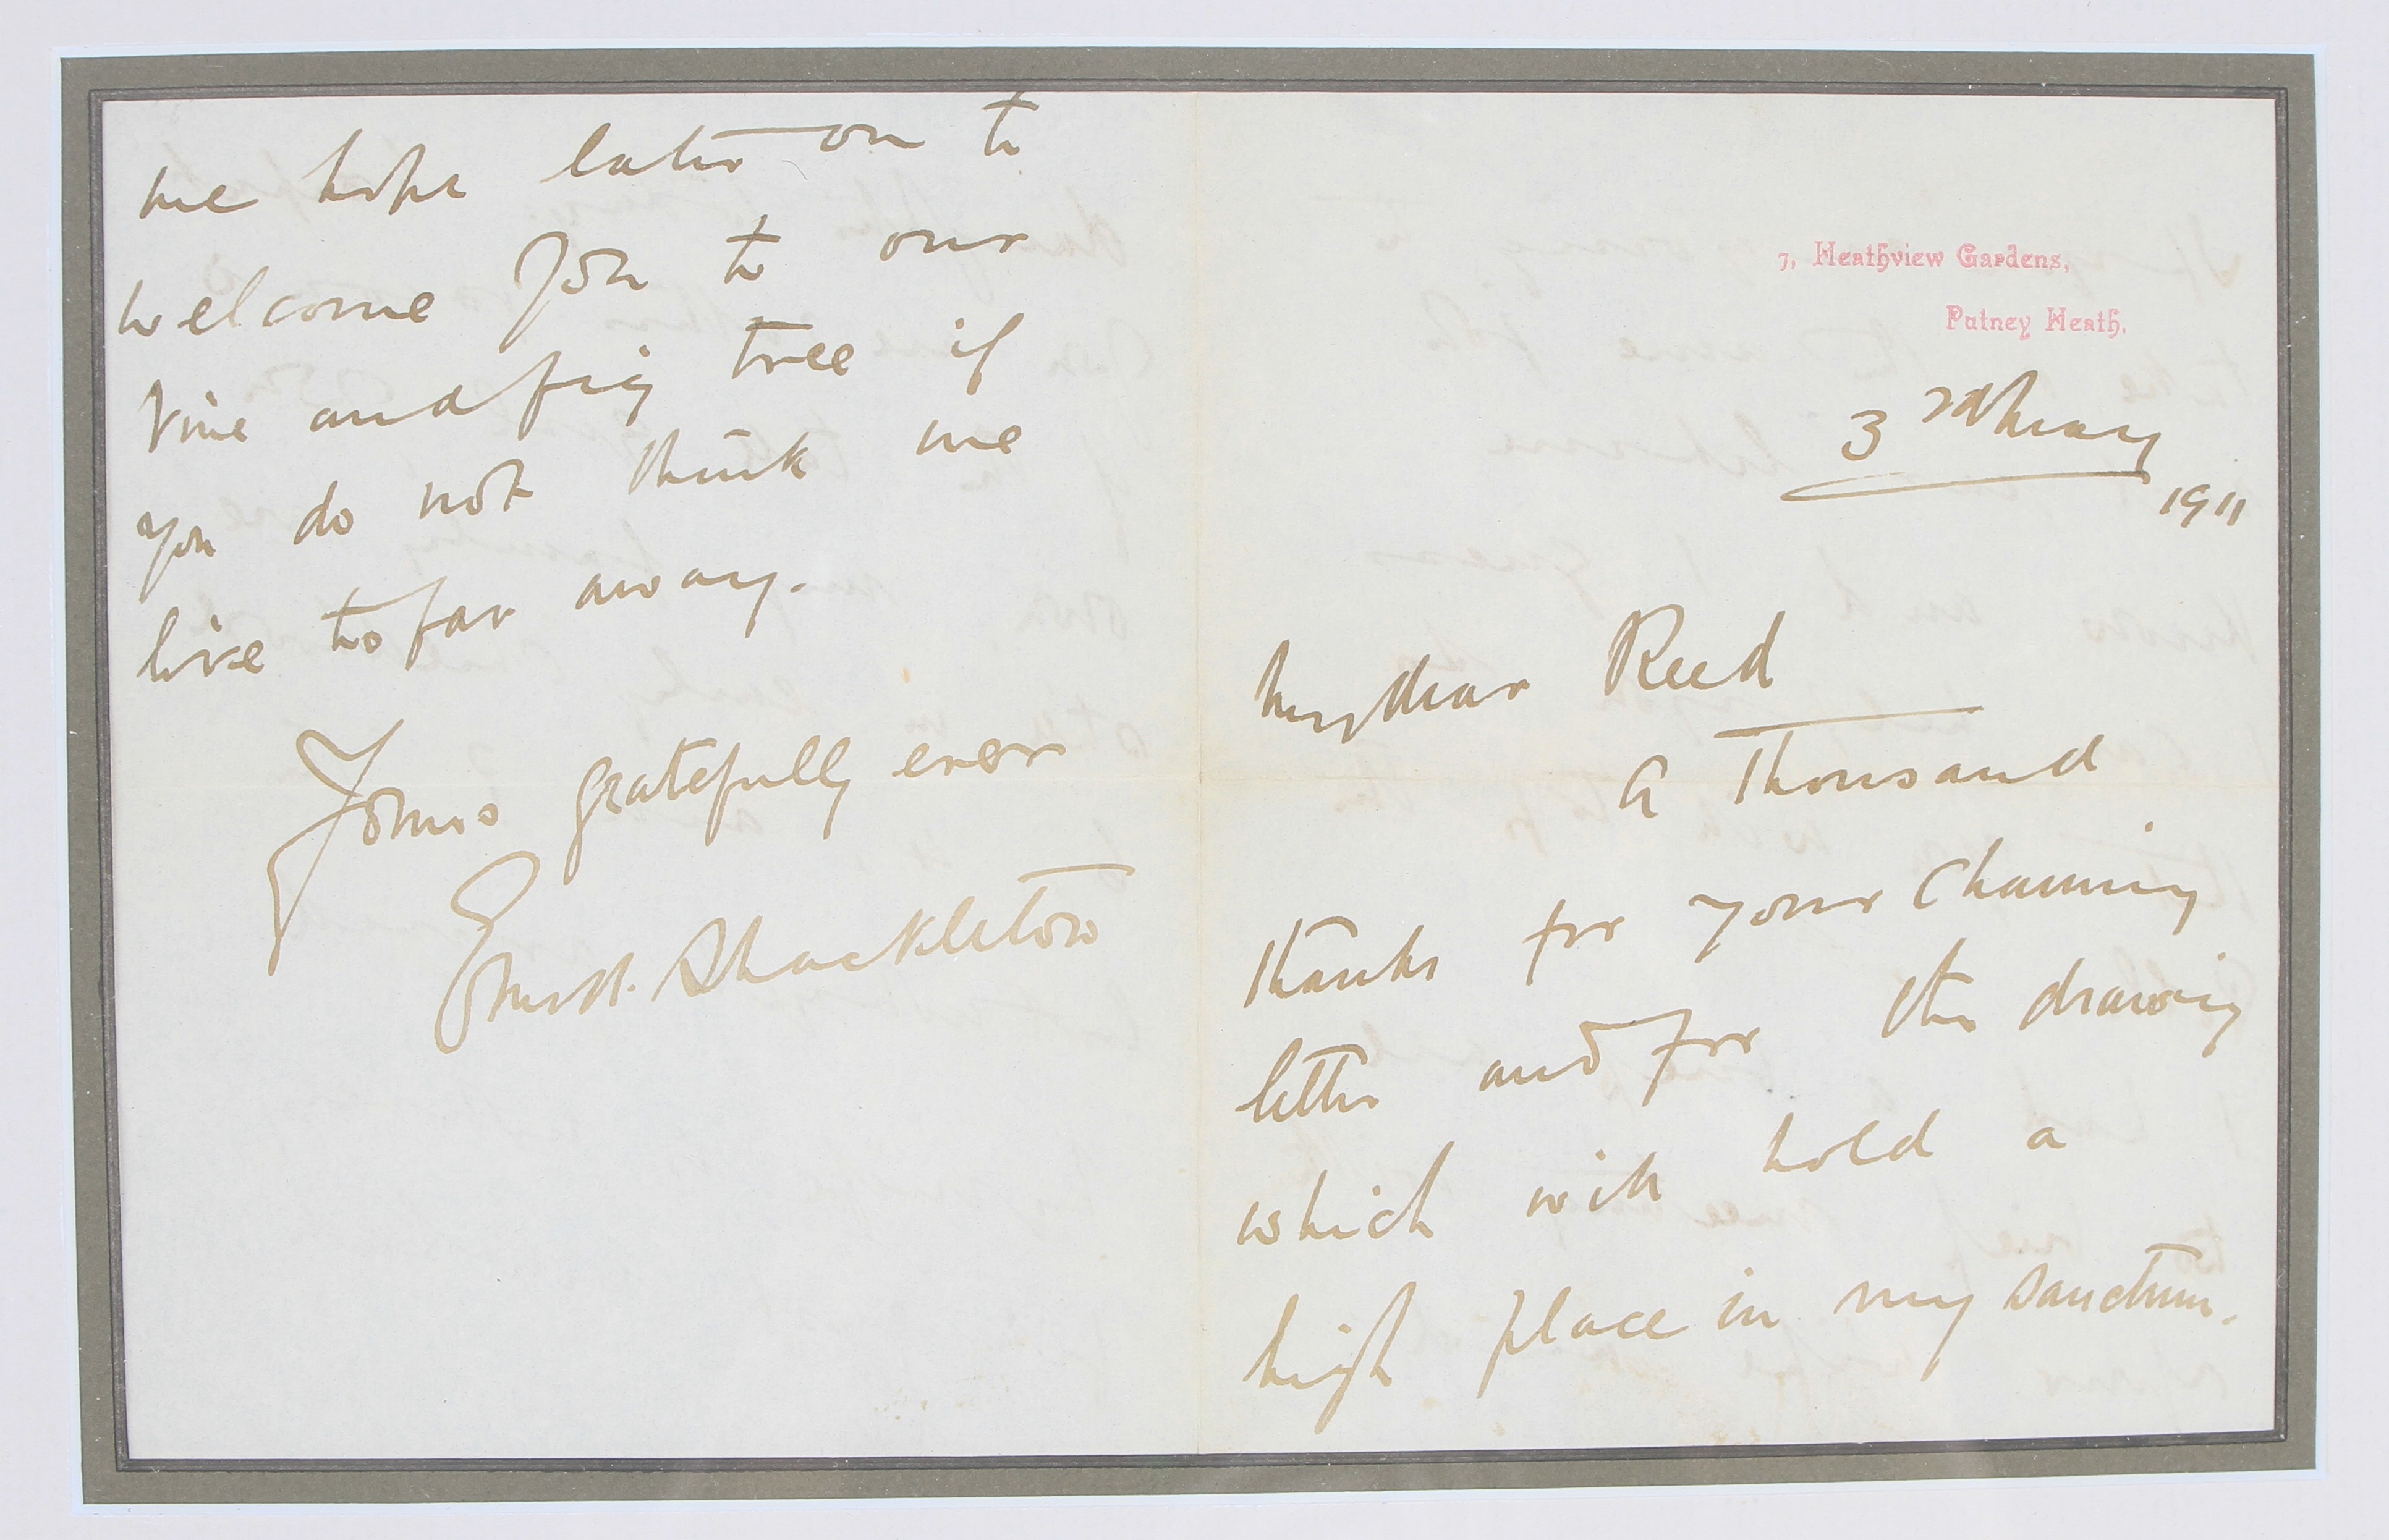 7, Heathview Gardens,
Putney Heath.
3rd May
1911
My dear Reed
A Thousand
thanks for your charming
letter and for the drawing
which will hold a
high place in my sanctum.
we hope later on to
welcome you to our
Vine and fig tree if
you do not think we
live too far away.
Yours gratefully ever
Ernest. Shackleton